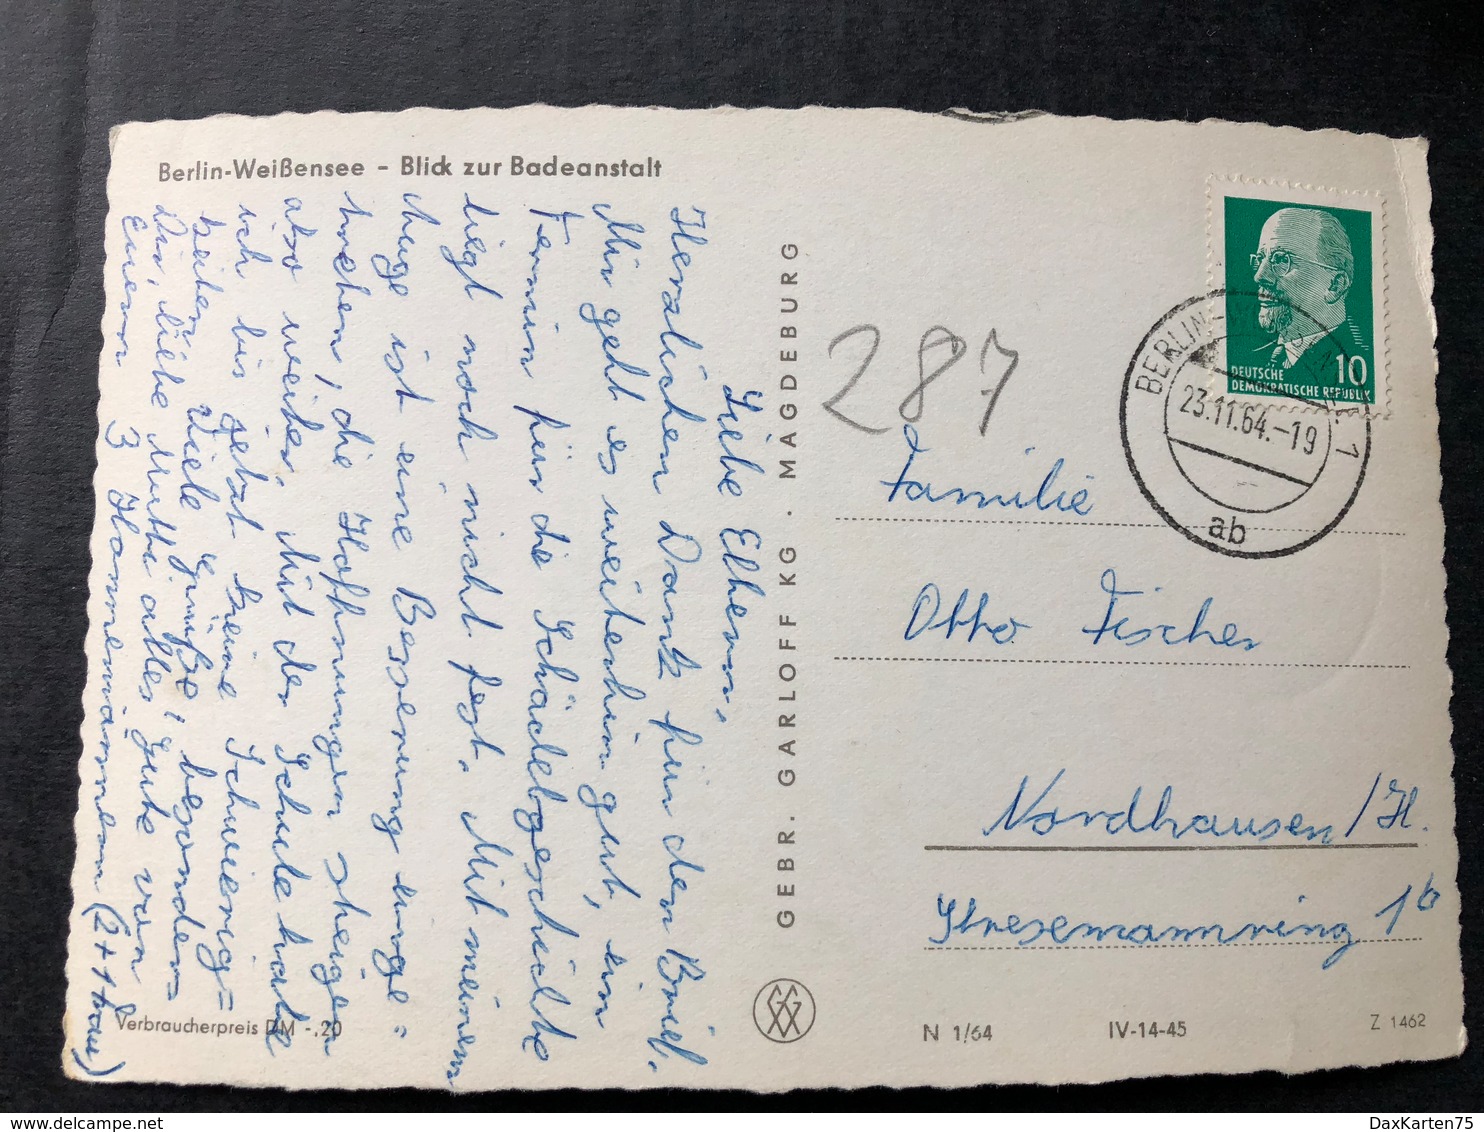 Berlin-Weißensee - Blick zur Badeanstalt
Liebe Eltern,
Herzlichen Dank für den Brief.
Mir geht es weiterhin gut, ein
Termin für die Schädelgeschichte
liegt noch nicht fest. Mit meinem
Auge ist eine Besserung einge=
treten, die Hoffnungen steigen
also weiter. Mit der Schule hatte
ich bis jetzt keine Schwierig=
keiten. Viele Grüße, besonders
Dir, liebe Mutti alles Gute von
Euern 3 Hannemännern (2+1 Frau)
GEBR. GARLOFF KG . MAGDEBURG
287
DEUTSCHE
DEMOKRATISCHE REPUBLIK
10
BERLIN- 1
23.11.64.-19
ab
Familie
Otto Fischer
Nordhausen/H.
Stresemannring 1b
Verbraucherpreis DM -,20
N 1/64
IV-14-45
Z 1462
DaxKarten75